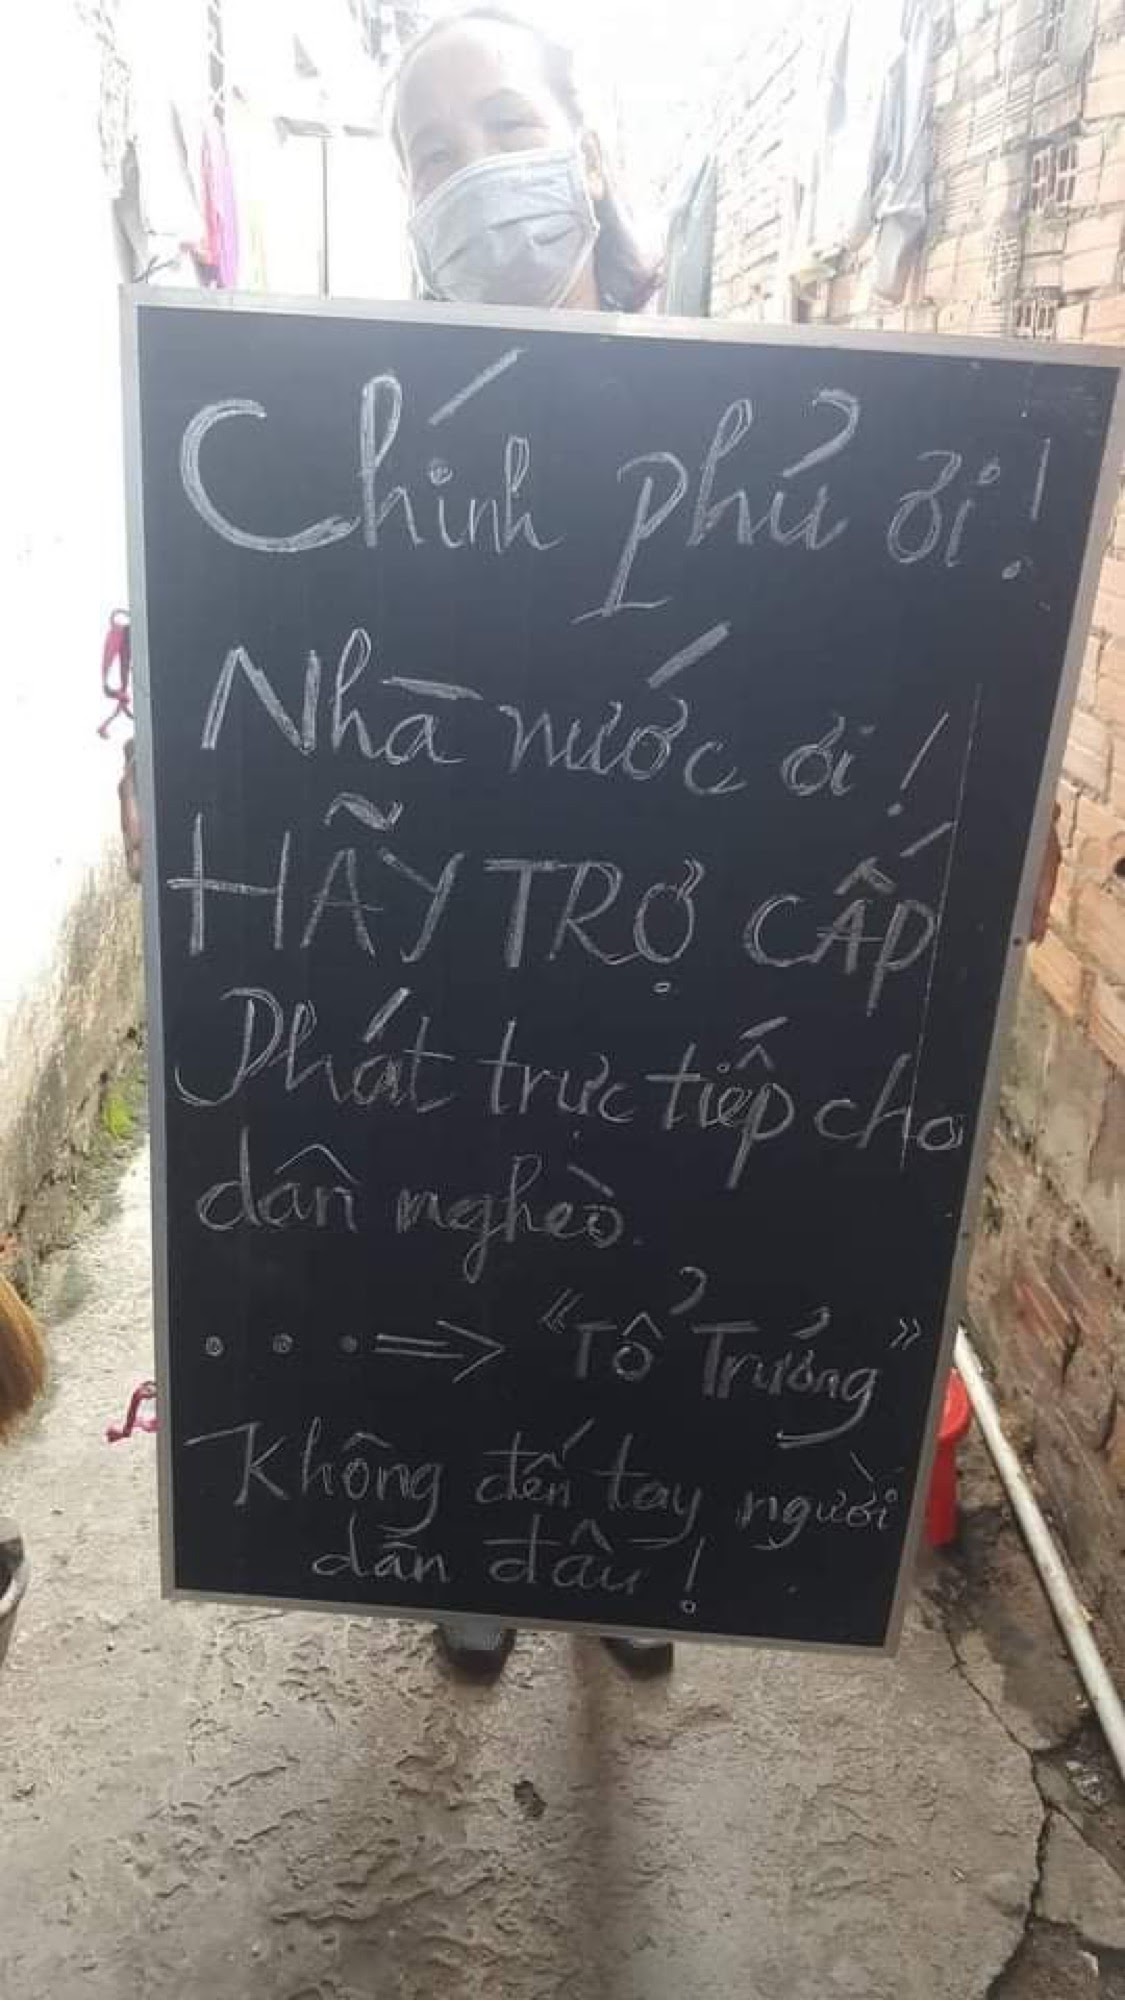 Chính phủ ơi!
Nhà nước ơi!
HÃY TRỢ CẤP
Phát trực tiếp cho
dân nghèo.
... => "Tổ Trưởng"
Không đến tay người
dân đâu!